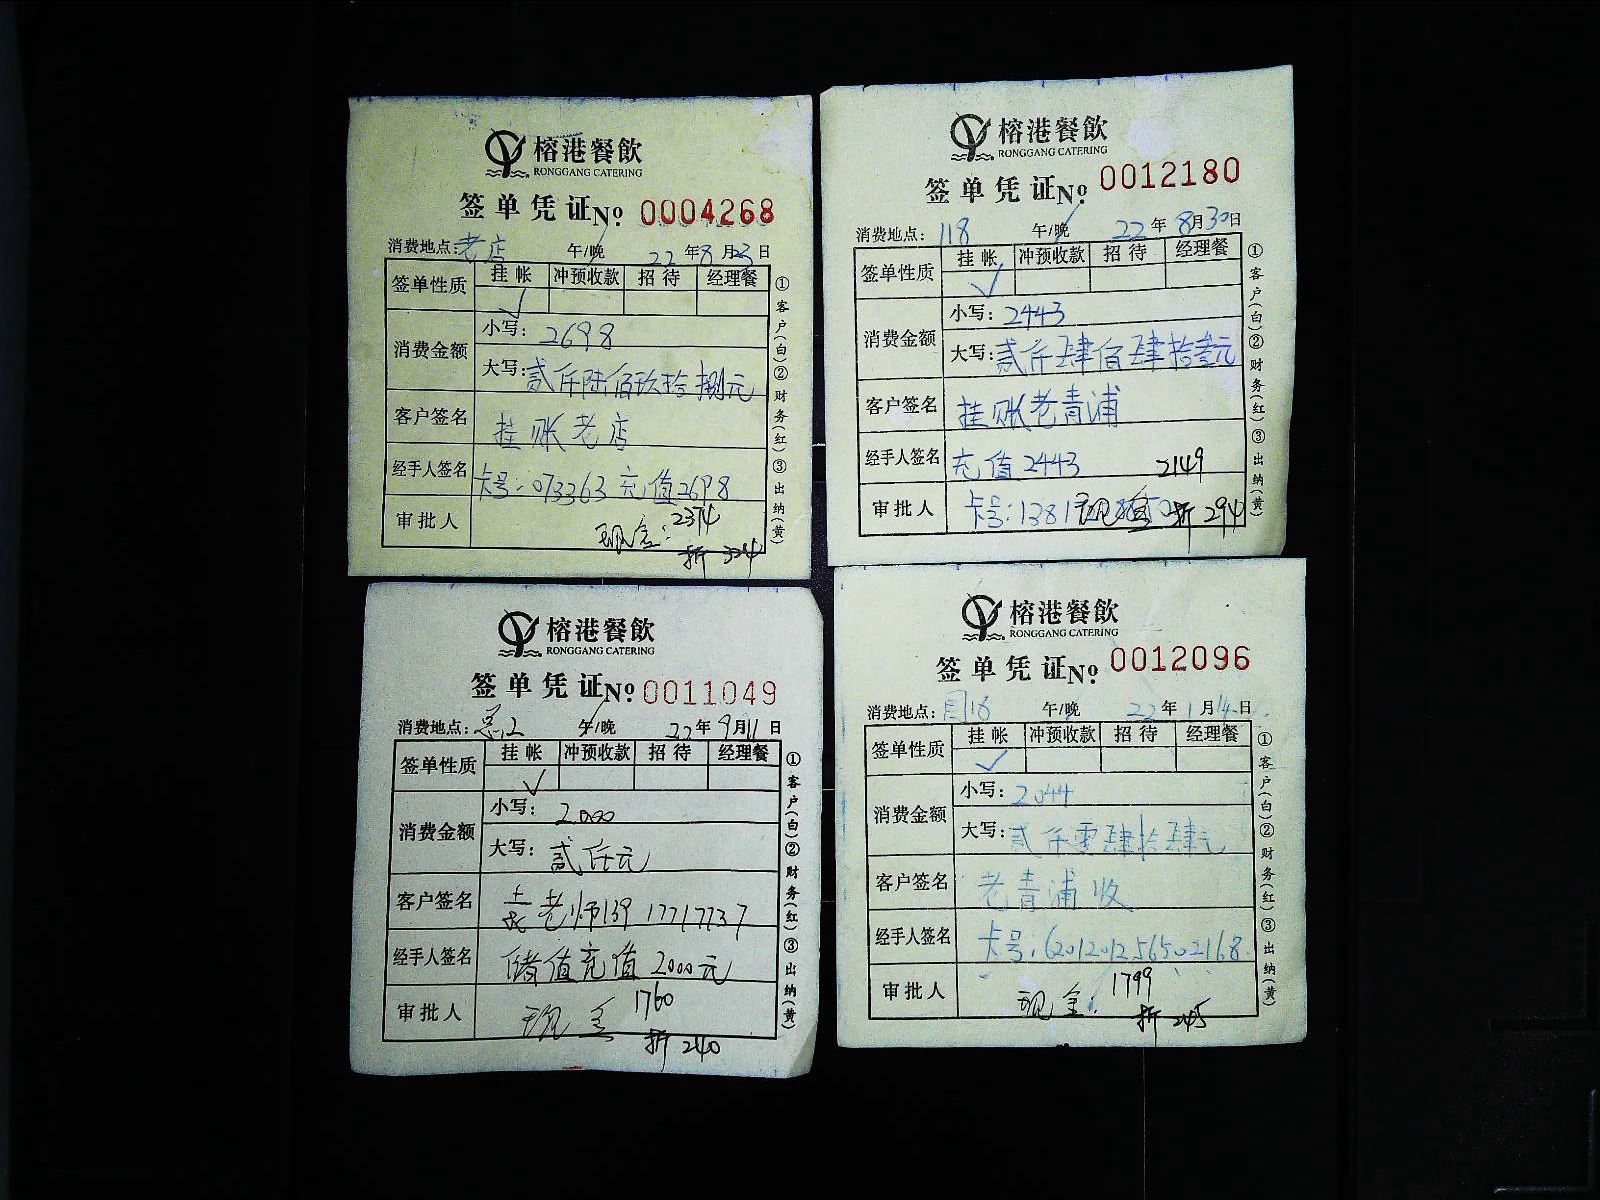 榕港餐飲
RONGGANG CATERING
签单凭证№ 0004268
消费地点:老店 午/晚 22年8月23日
签单性质 挂帐 冲预收款 招待 经理餐
✓
消费金额 小写:2698
大写:贰仟陆佰玖拾捌元
客户签名 挂账老店
经手人签名 卡号:073363 充值2698
审批人 现金:2374
折 324
①客户(白)②财务(红)③出纳(黄)
榕港餐飲
RONGGANG CATERING
签单凭证№ 0012180
消费地点:118 午/晚 22年8月30日
签单性质 挂帐 冲预收款 招待 经理餐
✓
消费金额 小写:2443
大写:贰仟肆佰肆拾叁元
客户签名 挂账老青浦
经手人签名 充值2443 2149
审批人 卡号: 现金 折 294
①客户(白)②财务(红)③出纳(黄)
榕港餐飲
RONGGANG CATERING
签单凭证№ 0011049
消费地点: 午/晚 22年9月11日
签单性质 挂帐 冲预收款 招待 经理餐
✓
消费金额 小写:2000
大写:贰仟元
客户签名 老师139 17717737
经手人签名 储值充值2000元
审批人 现金 1760
折 240
①客户(白)②财务(红)③出纳(黄)
榕港餐飲
RONGGANG CATERING
签单凭证№ 0012096
消费地点: 118 午/晚 22年1月14日
签单性质 挂帐 冲预收款 招待 经理餐
✓
消费金额 小写:2044
大写:贰仟零肆拾肆元
客户签名 老青浦收
经手人签名 卡号:6201201256502168
审批人 现金: 1799
折 245
①客户(白)②财务(红)③出纳(黄)